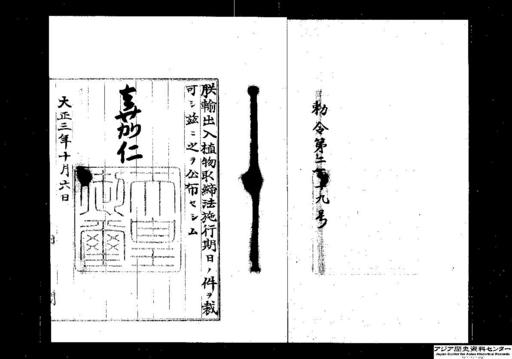 勅令第二百十九号
朕輸出入植物取締法施行期日ノ件ヲ裁
可シ茲ニ之ヲ公布セシム
嘉仁
天皇
御璽
大正三年十月六日
アジア歴史資料センター
Japan Center for Asian Historical Records